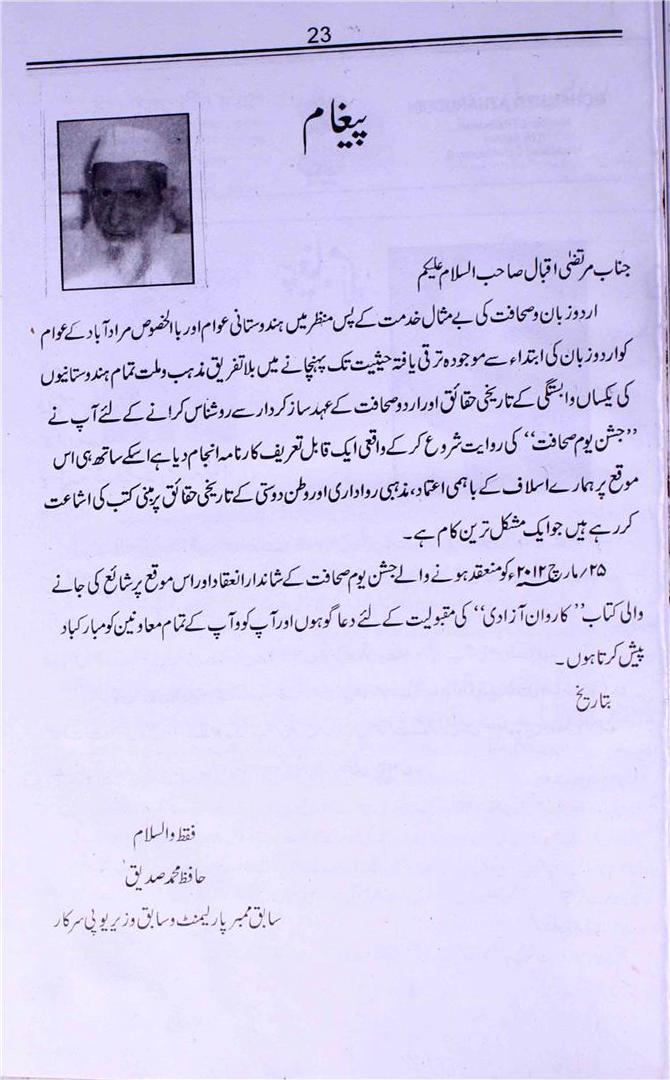 23
پیغام
جناب مرتضیٰ اقبال صاحب السلام علیکم
اردو زبان و صحافت کی بے مثال خدمت کے پس منظر میں ہندوستانی عوام اور بالخصوص مرادآباد کے عوام
کو اردو زبان کی ابتداء سے موجودہ ترقی یافتہ حیثیت تک پہنچانے میں بلا تفریق مذہب و ملت تمام ہندوستانیوں
کی یکساں وابستگی کے تاریخی حقائق اور اردو صحافت کے عہد ساز کردار سے روشناس کرانے کے لئے آپ نے
”جشن یوم صحافت“ کی روایت شروع کر کے واقعی ایک قابل تعریف کارنامہ انجام دیا ہے اسکے ساتھ ہی اس
موقع پر ہمارے اسلاف کے باہمی اعتماد، مذہبی رواداری اور وطن دوستی کے تاریخی حقائق پر مبنی کتب کی اشاعت
کر رہے ہیں جو ایک مشکل ترین کام ہے۔
۲۵/ مارچ ۲۰۱۲ء کو منعقد ہونے والے جشن یوم صحافت کے شاندار انعقاد اور اس موقع پر شائع کی جانے
والی کتاب ”کاروان آزادی“ کی مقبولیت کے لئے دعا گو ہوں اور آپ کو و آپ کے تمام معاونین کو مبارکباد
پیش کرتا ہوں۔
بتاریخ
فقط والسلام
حافظ محمد صدیق
سابق ممبر پارلیمنٹ و سابق وزیر یو پی سرکار